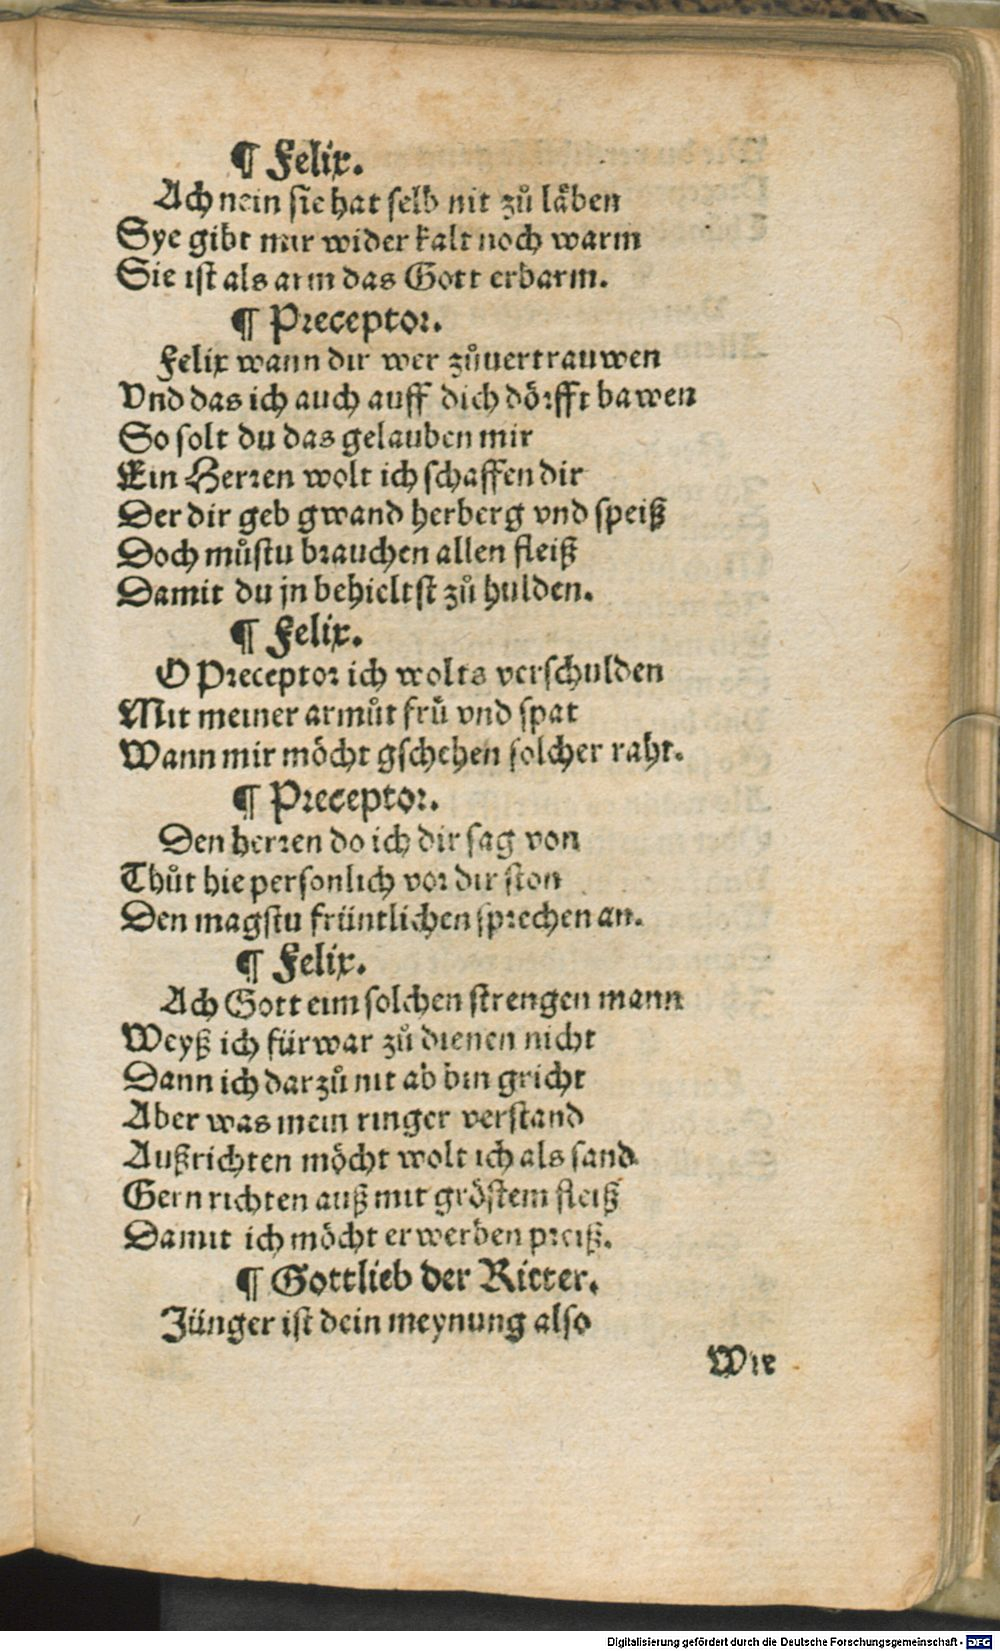 ¶ Felix.
Ach nein sie hat selb nit zů läben
Sye gibt mir wider kalt noch warm
Sie ist als arm das Gott erbarm.
¶ Preceptor.
Felix wann dir wer zůuertrauwen
Vnd das ich auch auff dich dörfft bawen
So solt du das gelauben mir
Ein Herren wolt ich schaffen dir
Der dir geb gwand herberg vnd speiß
Doch můstu brauchen allen fleiß
Damit du jn behieltst zů hulden.
¶ Felix.
O Preceptor ich wolts verschulden
Mit meiner armůt frü vnd spat
Wann mir möcht gschehen solcher raht.
¶ Preceptor.
Den herren do ich dir sag von
Thůt hie personlich vor dir ston
Den magstu früntlichen sprechen an.
¶ Felix.
Ach Gott eim solchen strengen mann
Weyß ich fürwar zů dienen nicht
Dann ich darzů nit ab bin gricht
Aber was mein ringer verstand
Außrichten möcht wolt ich als sand
Gern richten auß mit gröstem fleiß
Damit ich möcht erwerben preiß.
¶ Gottlieb der Ritter.
Jünger ist dein meynung also
Wie
Digitalisierung gefördert durch die Deutsche Forschungsgemeinschaft - DFG